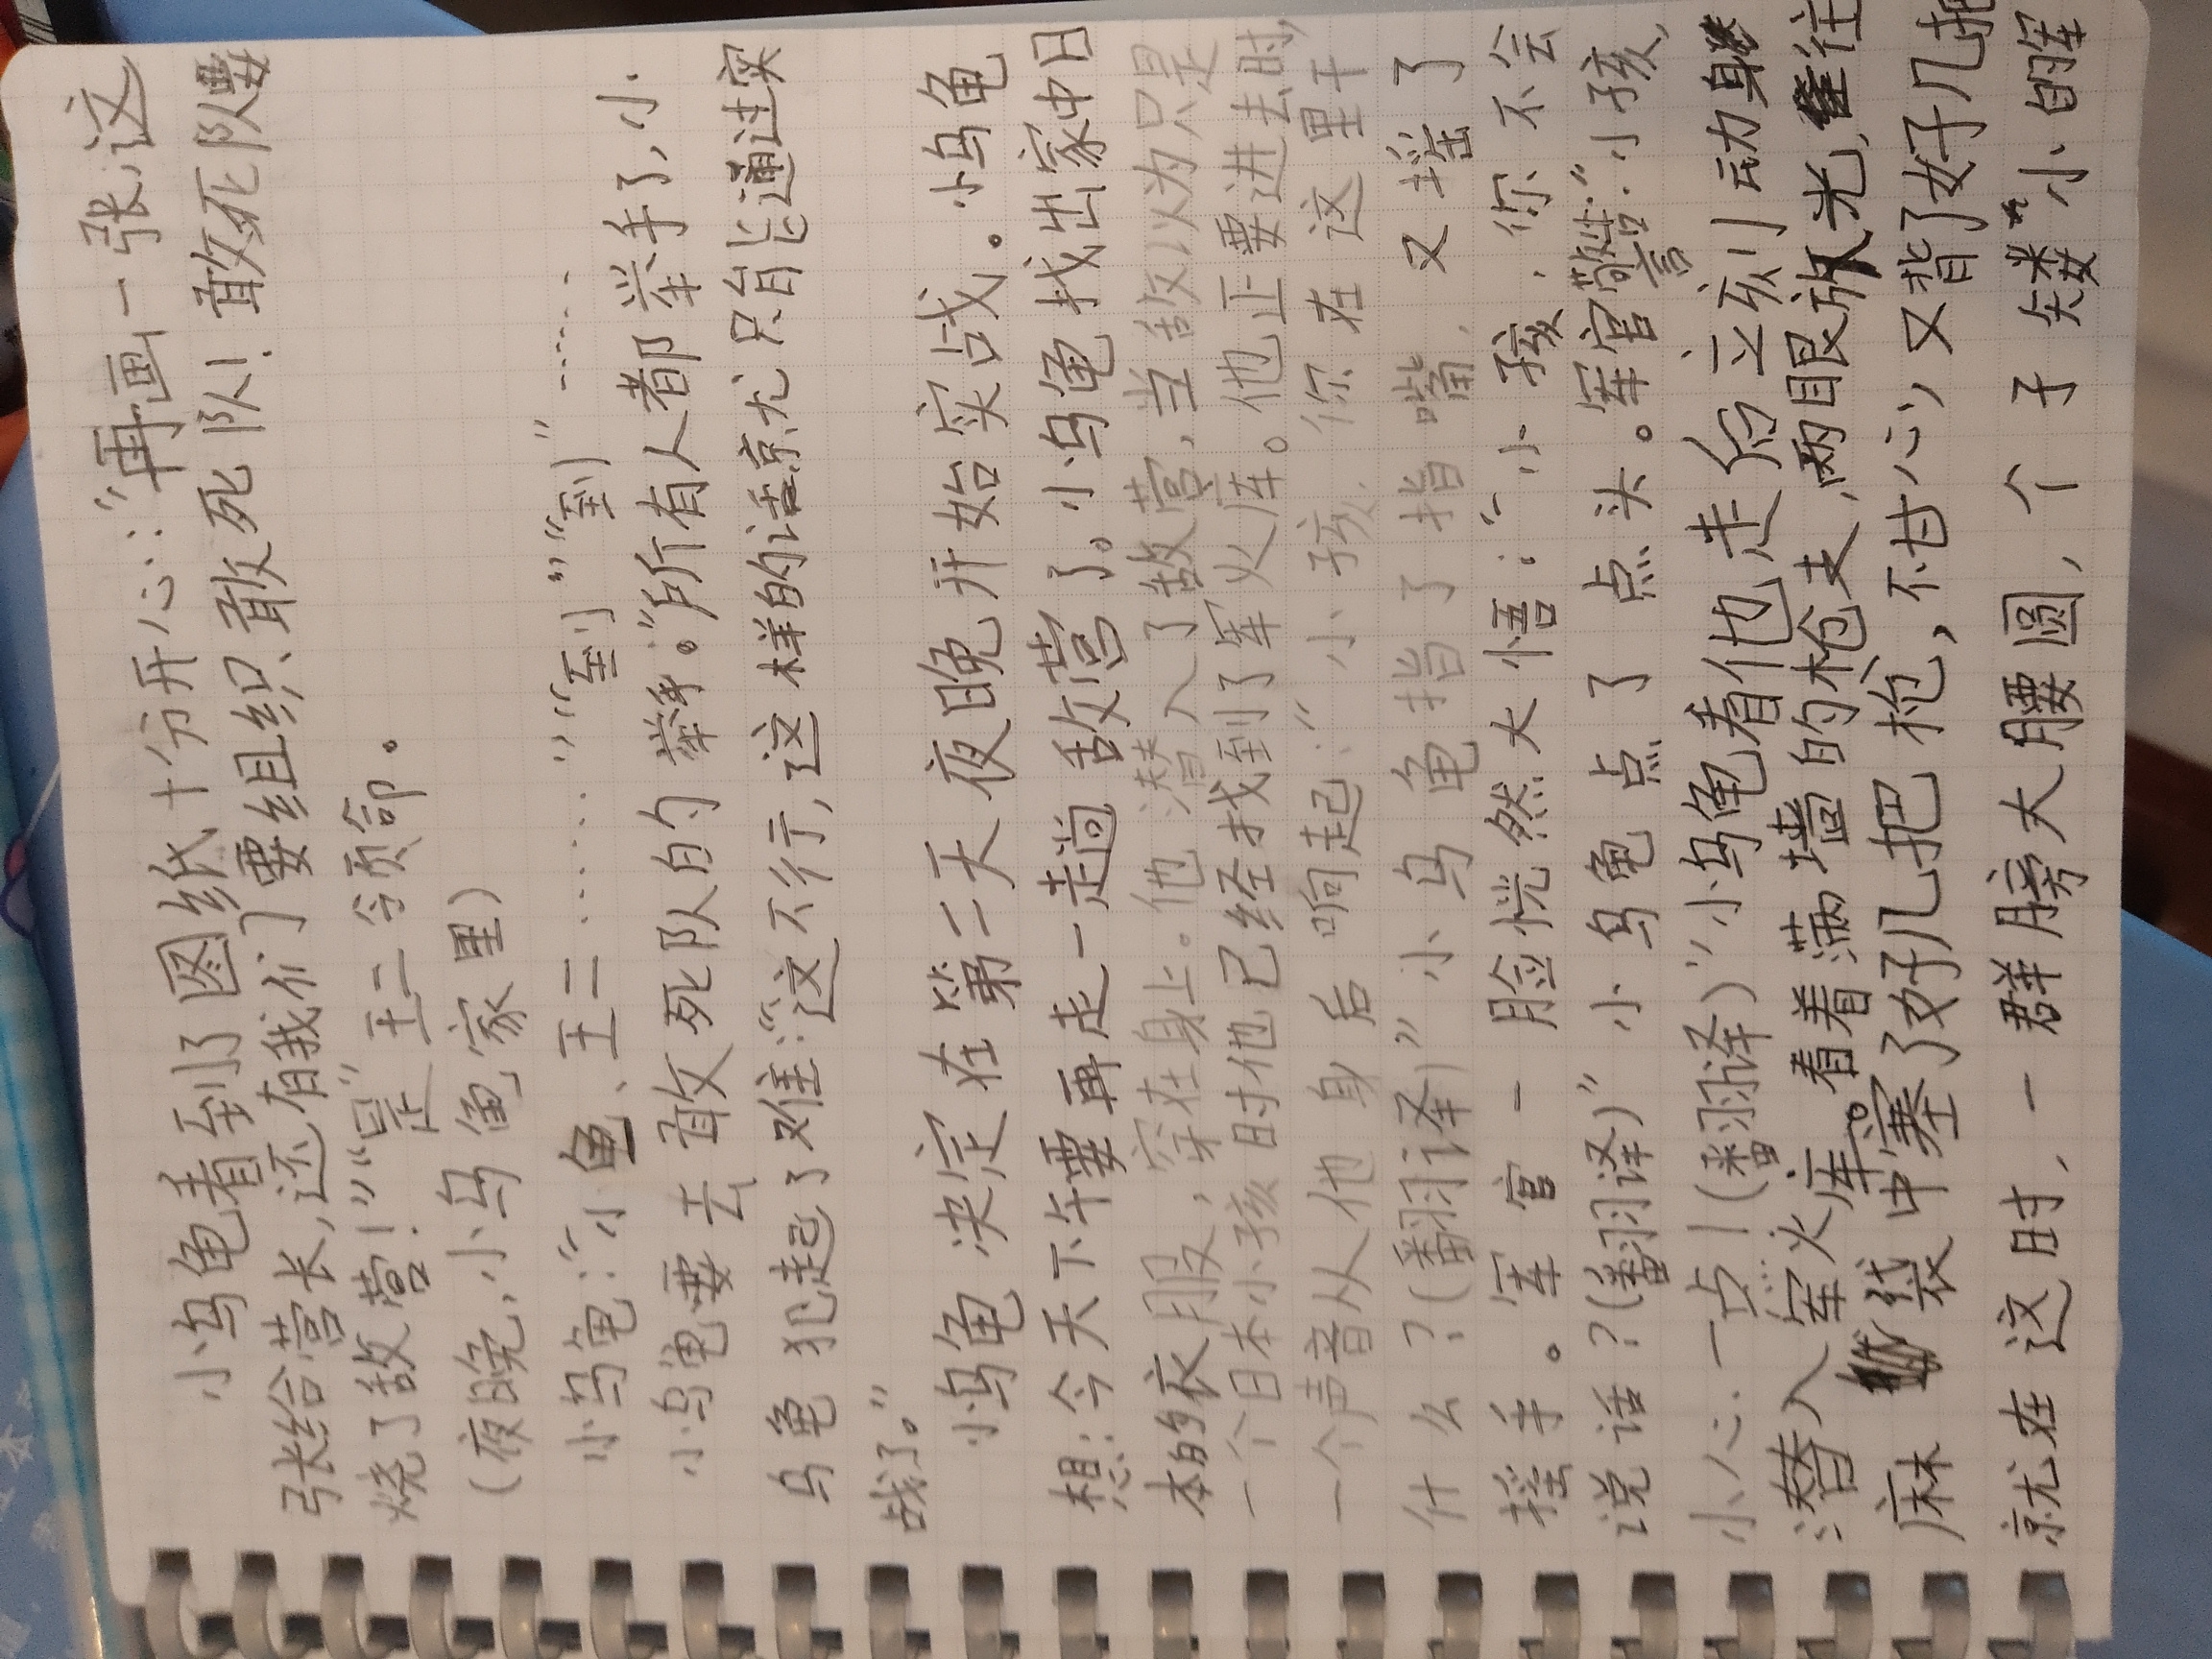 小乌龟看到了图纸十分开心:“再画一张,这
张给营长,还有我们要组织敢死队!敢死队要
烧了敌营!”“是”王二领命。
(夜晚,小乌龟家里)
小乌龟:“小鱼、王二……”“到”“到”“到”……
小乌龟要去敢死队的举手。”所有人都举手了,小
乌龟犯起了难:“这不行,这样的话京尤只能通过实
战了。”
小乌龟决定在第二天夜晚开始实战。小乌龟
想:今天下午要再走一走趟敌营了。小乌龟找出家中日
本的衣服,穿在身上。他潜入了敌营,当敌以为只是
一个日本小孩时他已经找到了军火库。他正要进去时,
一个声音从他身后响起:“小孩,你在这里干
什么?(翻译)”小乌龟指了指嘴,又摇了
摇手。军官一脸恍然大悟:“小孩,你不会
说话?(翻译)”小乌龟点了点头。军官警告:“小孩,
小心一点!(翻译)”小乌龟看他走后立刻动身
潜入军火库。看着满墙的枪支,两眼放光,往
麻袋中塞了好几把枪,不甘心,又背了好几把
就在这时,一群膀大腰圆,个子矮小的军